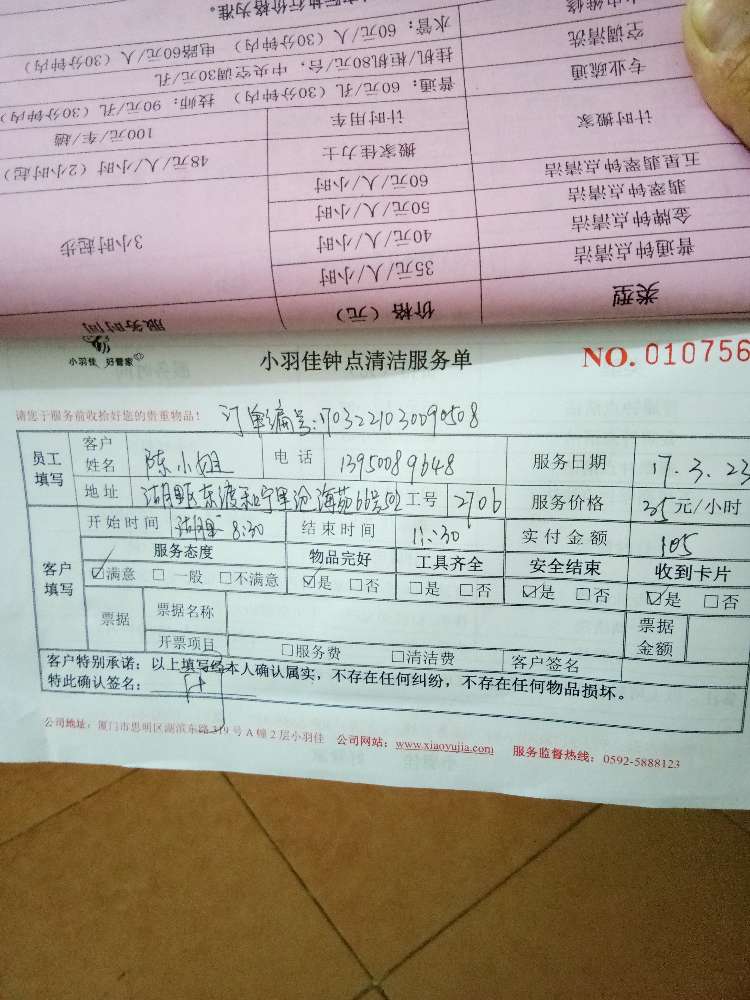 水电维修
水管：60元/人（30分钟内） 电路60元/人（30分钟内）
空调清洗
挂机/柜机80元/台，中央空调30元/孔
专业疏通
普通：60元/孔（30分钟内） 技师：90元/孔（30分钟内）
计时搬家
计时用车
100元/车/趟
搬家佳力士
48元/人/小时（2小时起）
五星翡翠钟点清洁
60元/人/小时
翡翠钟点清洁
50元/人/小时
金牌钟点清洁
40元/人/小时
3小时起步
普通钟点清洁
35元/人/小时
类型
价格（元）
服务时间
小羽佳 好管家
小羽佳钟点清洁服务单
NO. 010756
请您于服务前收拾好您的贵重物品！
订单编号:170322103090508
员工填写
客户姓名
陈小姐
电话
13950089648
服务日期
17.3.23
地址
湖里区东渡和宁里 海苑66号502
工号
2706
服务价格
35元/小时
客户填写
开始时间
8:30
结束时间
11:30
实付金额
105
服务态度
物品完好
工具齐全
安全结束
收到卡片
☑满意 □一般 □不满意
☑是 □否
□是 □否
☑是 □否
☑是 □否
票据
票据名称
票据金额
开票项目
□服务费 □清洁费
客户签名
客户特别承诺：以上填写经本人确认属实，不存在任何纠纷，不存在任何物品损坏。
特此确认签名：
公司地址：厦门市思明区湖滨东路319号A幢2层小羽佳 公司网站：www.xiaoyujia.com 服务监督热线：0592-5888123